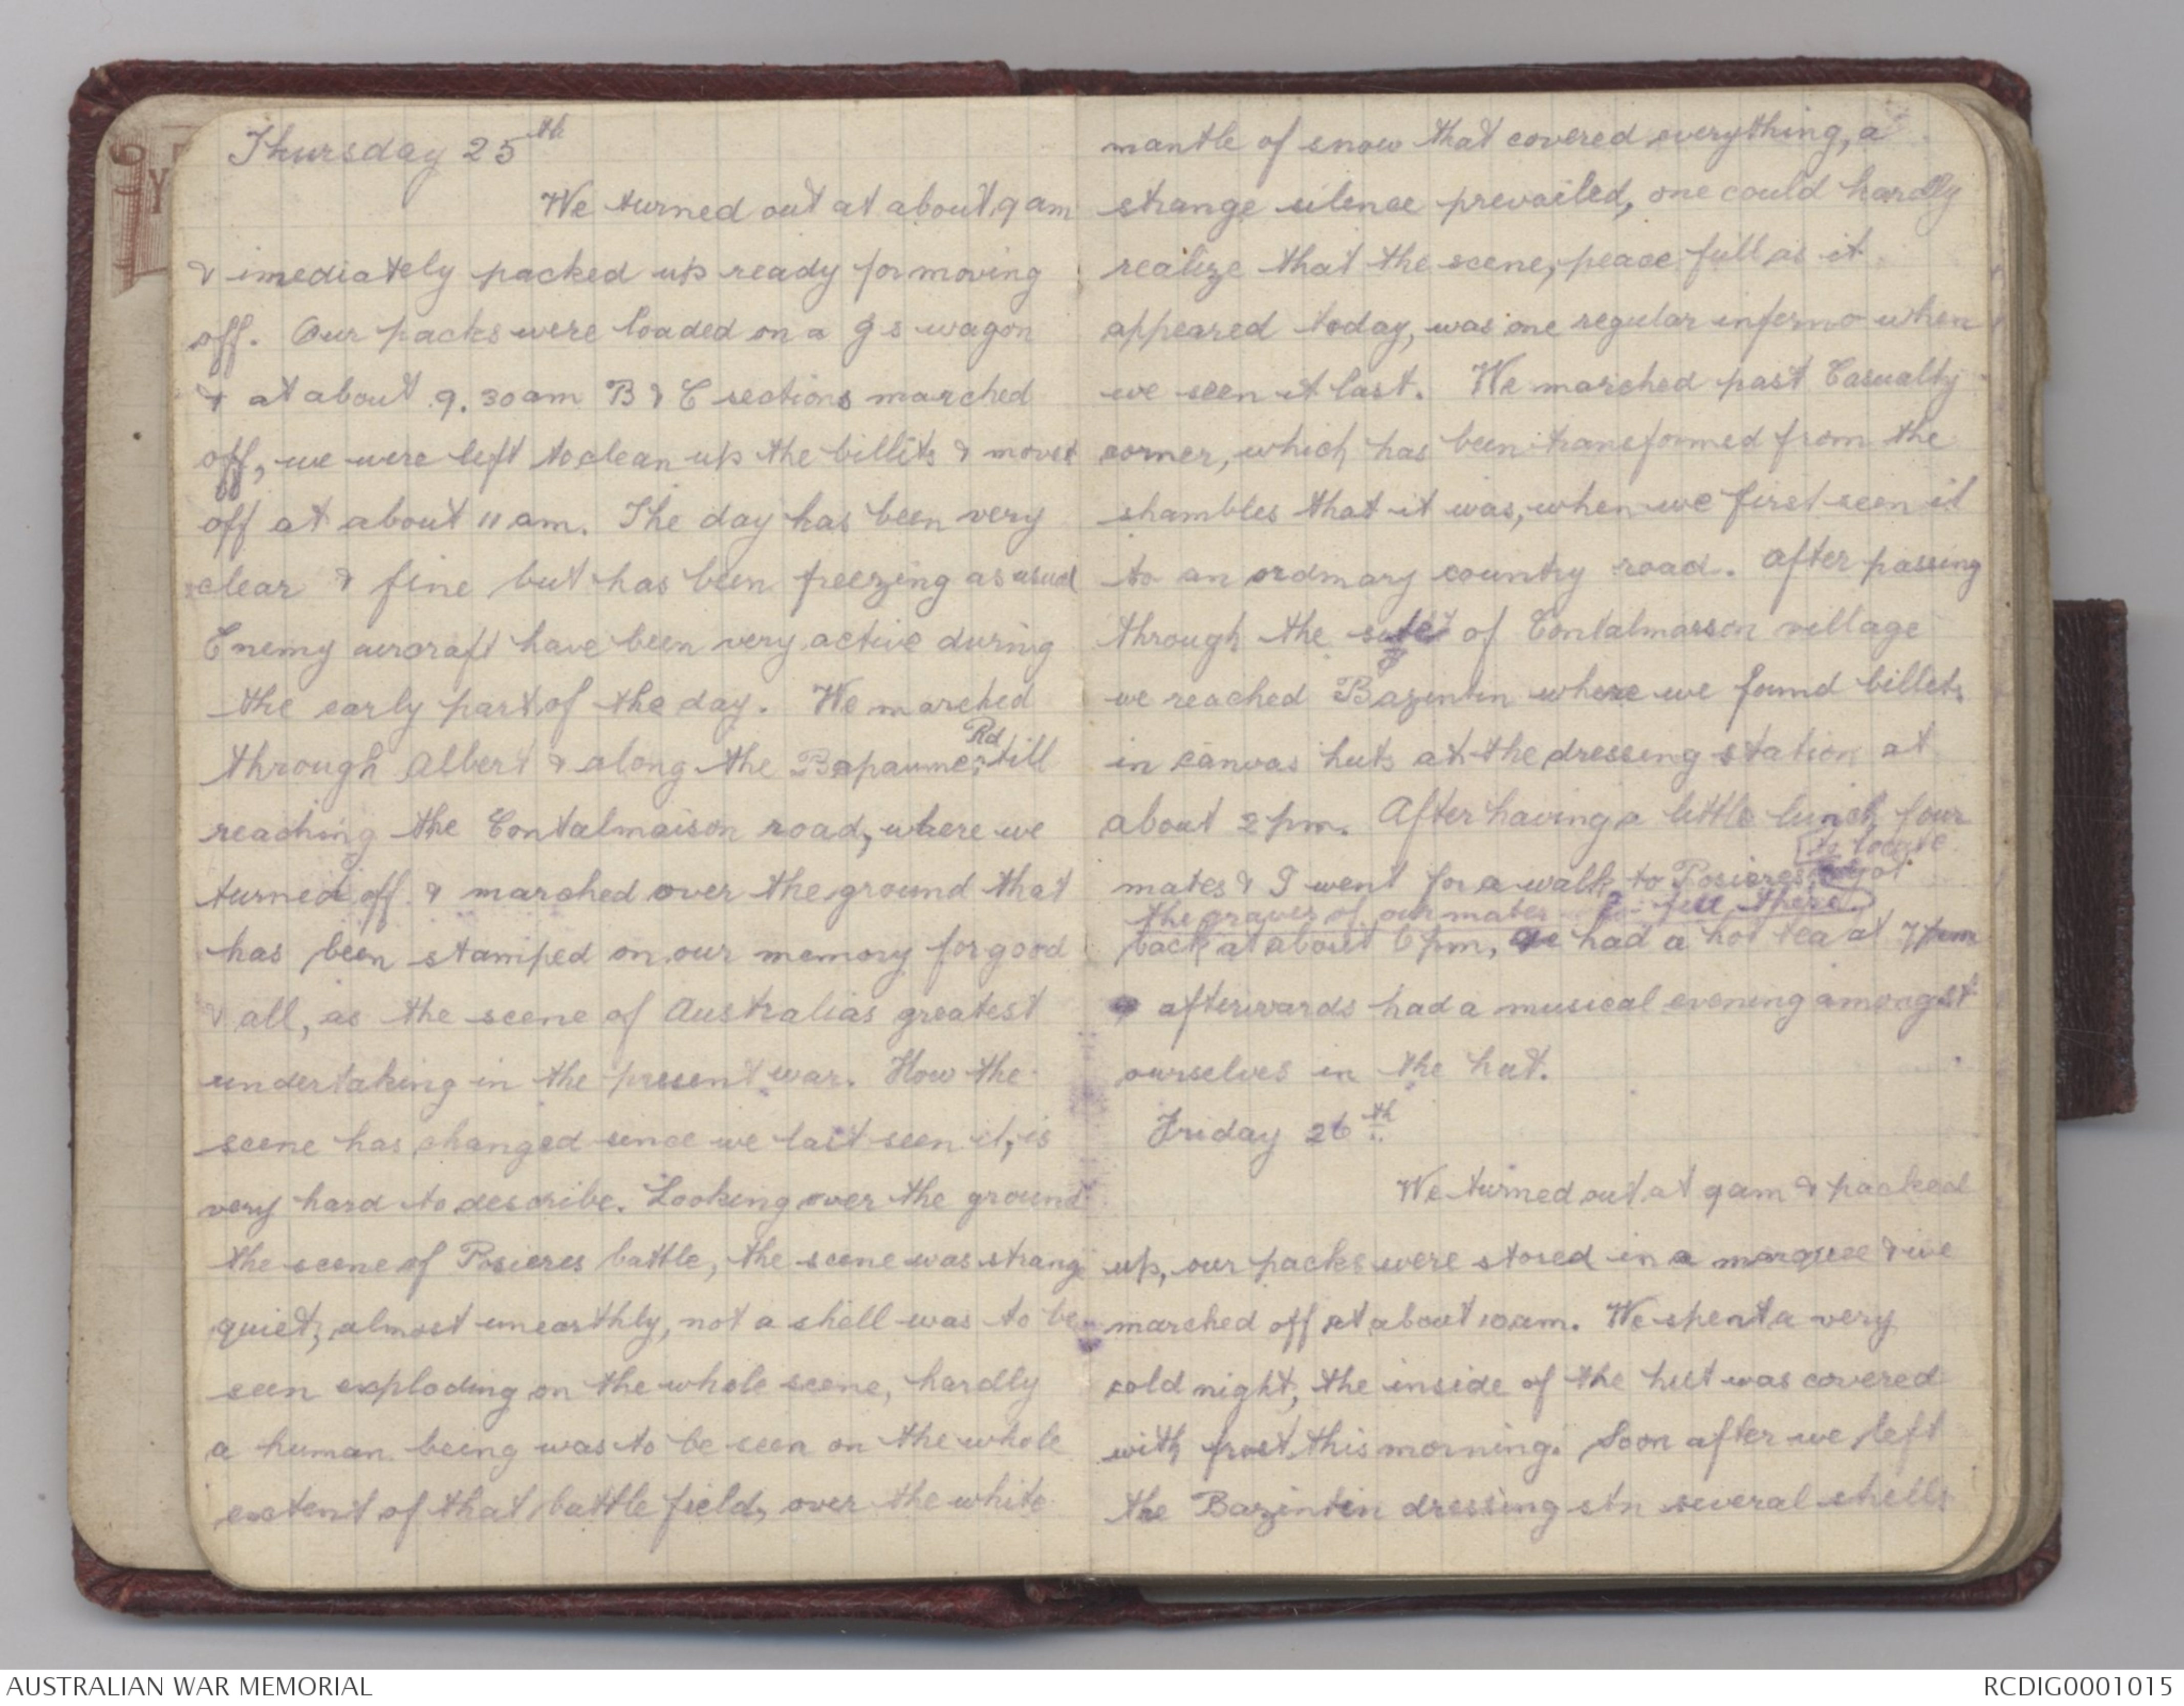 Thursday 25th
We turned out at about 9 am
& imediately packed up ready for moving
off. Our packs were loaded on a g s wagon
& at about 9.30am B & C sections marched
off, we were left to clean up the billits & moved
off at about 11 am. The day has been very
clear & fine but has been freezing as usual
Enemy aircraft have been very active during
the early part of the day. We marched
through Albert & along the Bapaume Rd till
reaching the Contalmaison road, where we
turned off & marched over the ground that
has been stamped on our memory for good
& all, as the scene of Australias greatest
undertaking in the present war. How the
scene has changed since we last seen it, is
very hard to describe. Looking over the ground
the scene of Posieres battle, the scene was strange
quiet, almost unearthly, not a shell was to be
seen exploding on the whole scene, hardly
a human being was to be seen on the whole
extent of that battle field, over the white
mantle of snow that covered everything, a
strange silence prevailed, one could hardly
realize that the scene, peace full as it
appeared today, was one regular inferno when
we seen it last. We marched past Casualty
corner, which has been transformed from the
shambles that it was, when we first seen it
to an ordinary country road. After passing
through the of Contalmaison village
we reached Bazentin where we found billets
in canvas huts at the dressing station at
about 2 pm. After having a little lunch, four
mates & I went for a walk to Posieres to locate
the graves of our mates fell there got
back at about 6 pm, we had a hot tea at 7 pm
afterwards had a musical evening amongst
ourselves in the hut.
Friday 26th
We turned out at 9 am & packed
up, our packs were stored in a marquee & we
marched off at about 10 am. We spent a very
cold night, the inside of the hut was covered
with frost this morning. Soon after we left
the Bazintin dressing stn several shells
AUSTRALIAN WAR MEMORIAL
RCDIG0001015